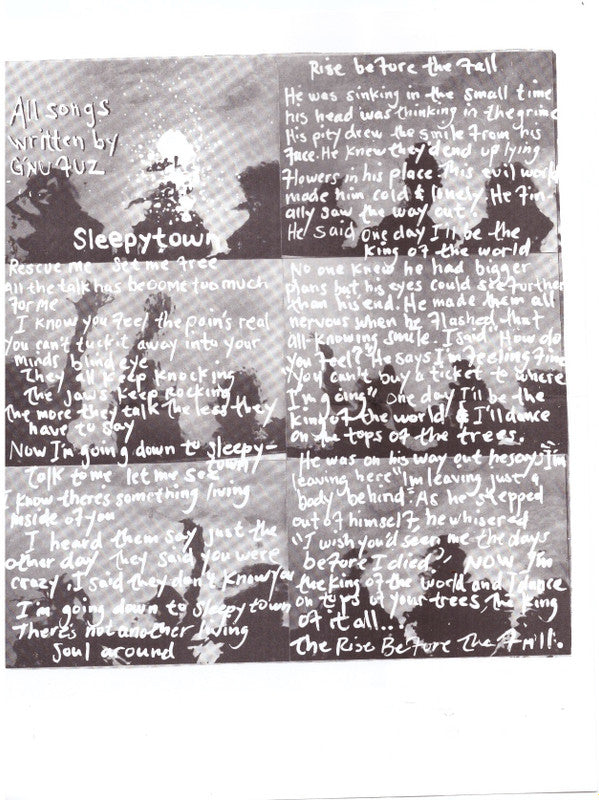 All songs
written by
GNU FUZ
Sleepytown
Rescue me Set me free
All the talk has become too much
for me
I know you feel the pain's real
You can't tuck it away into your
minds blind eye
They all keep knocking
The jaws keep rocking
The more they talk the less they
have to say
Now I'm going down to sleepy-
town
Talk to me let me see
I know theres something living
inside of you
I heard them say just the
other day They said you were
crazy, I said they don't know you
I'm going down to sleepytown
There's not another living
soul around
Rise before the fall
He was sinking in the small time
his head was thinking in the grime
His pity drew the smile from his
face. He knew they'd end up lying
flowers in his place. This evil world
made him cold & lonely. He fin-
ally saw the way out.
He said one day I'll be the
king of the world
No one knew he had bigger
plans but his eyes could see further
than his end. He made them all
nervous when he flashed that
all-knowing smile. I said "How do
you feel? He says I'm feeling fine
"You can't buy a ticket to where
I'm going" one day I'll be the
king of the world & I'll dance
on the tops of the trees.
He was on his way out he says "I'm
leaving here "I'm leaving just a
body behind". As he stepped
out of himself, he whisered
"I wish you'd seen me the days
before I died." NOW I'm
the king of the world and I dance
on tops of your trees The king
of it all...
The Rise Before The Fall.